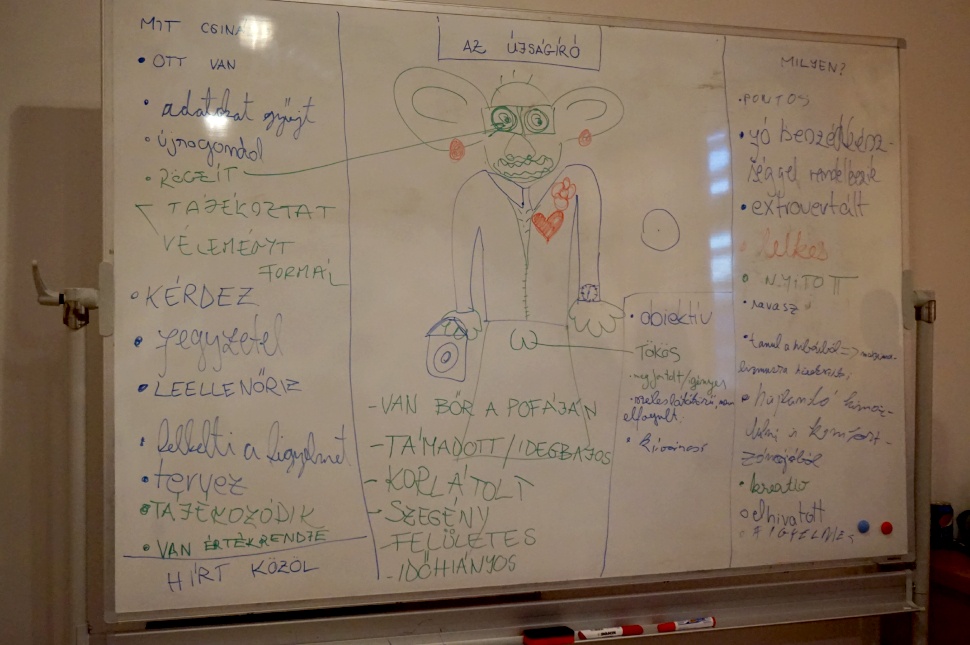 MIT CSINÁL
• OTT VAN
• adatokat gyűjt
• újragondol
• RÖGZÍT
TÁJÉKOZTAT
VÉLEMÉNYT
FORMÁL
• KÉRDEZ
• jegyzetel
• LEELLENŐRIZ
• felkelti a figyelmet
• tervez
• TÁJÉKOZÓDIK
• VAN ÉRTÉKRENDJE
HÍRT KÖZÖL
AZ ÚJSÁGÍRÓ
- VAN BŐR A POFÁJÁN
- TÁMADOTT / IDEGBAJOS
- KORLÁTOLT
- SZEGÉNY
- FELÜLETES
- IDŐHIÁNYOS
• obiektív
TÖKÖS
elfogult.
• kíváncsi
MILYEN?
• PONTOS
• jó beszédkész-
séggel rendelkezik
• extrovertált
• lelkes
• NYITOTT
• ravasz
• tanul a hibáiból =>
• hajlandó kimoz-
dulni a komfort-
zónájából
• kreatív
elhivatott
FIGYELMES